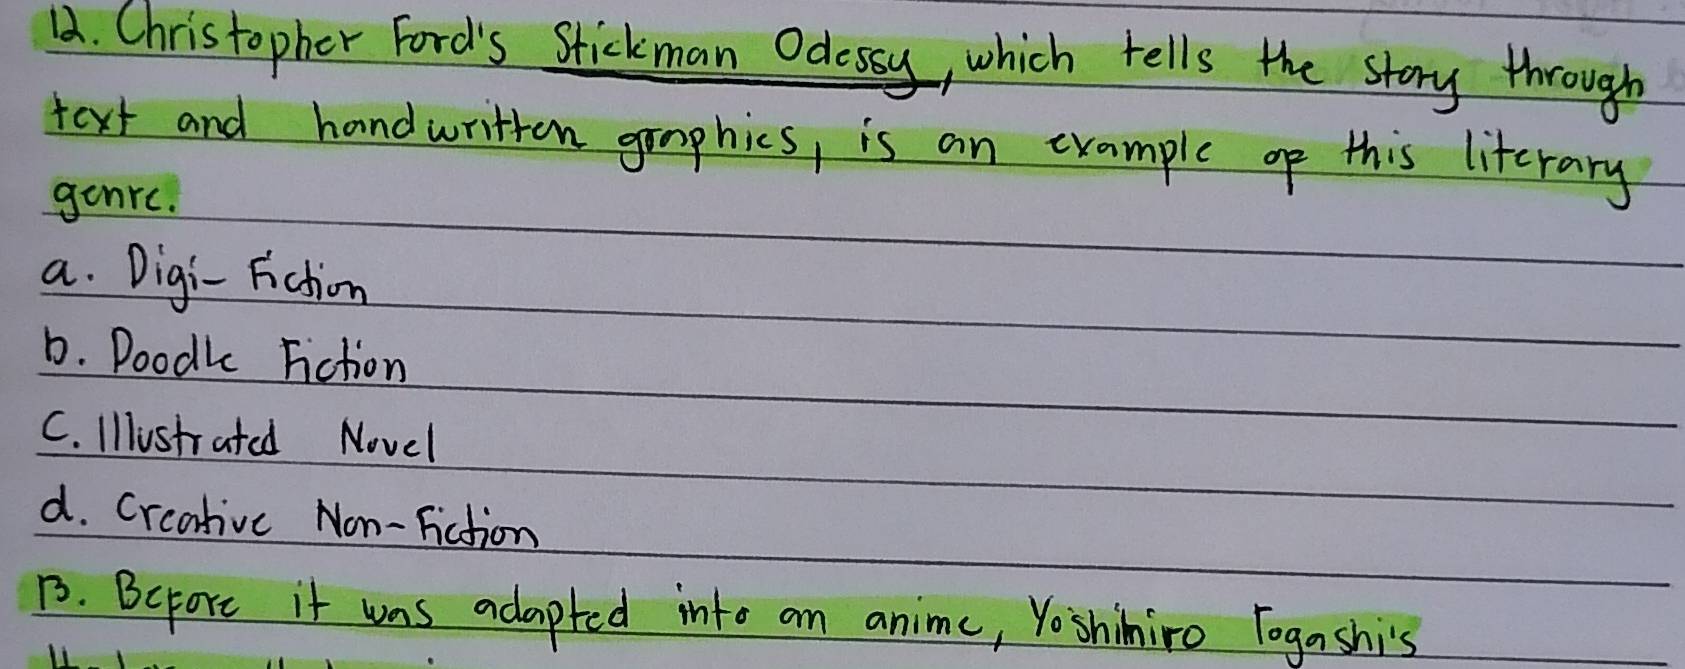 12. Christopher Ford's Stickman Odessy, which tells the story through
text and handwritten graphics, is an example of this literary
genre.
a. Digi-Fiction
b. Doodle Fiction
C. Illustrated Novel
d. Creative Non-Fiction
13. Before it was adapted into an anime, Yoshihiro Togashi's